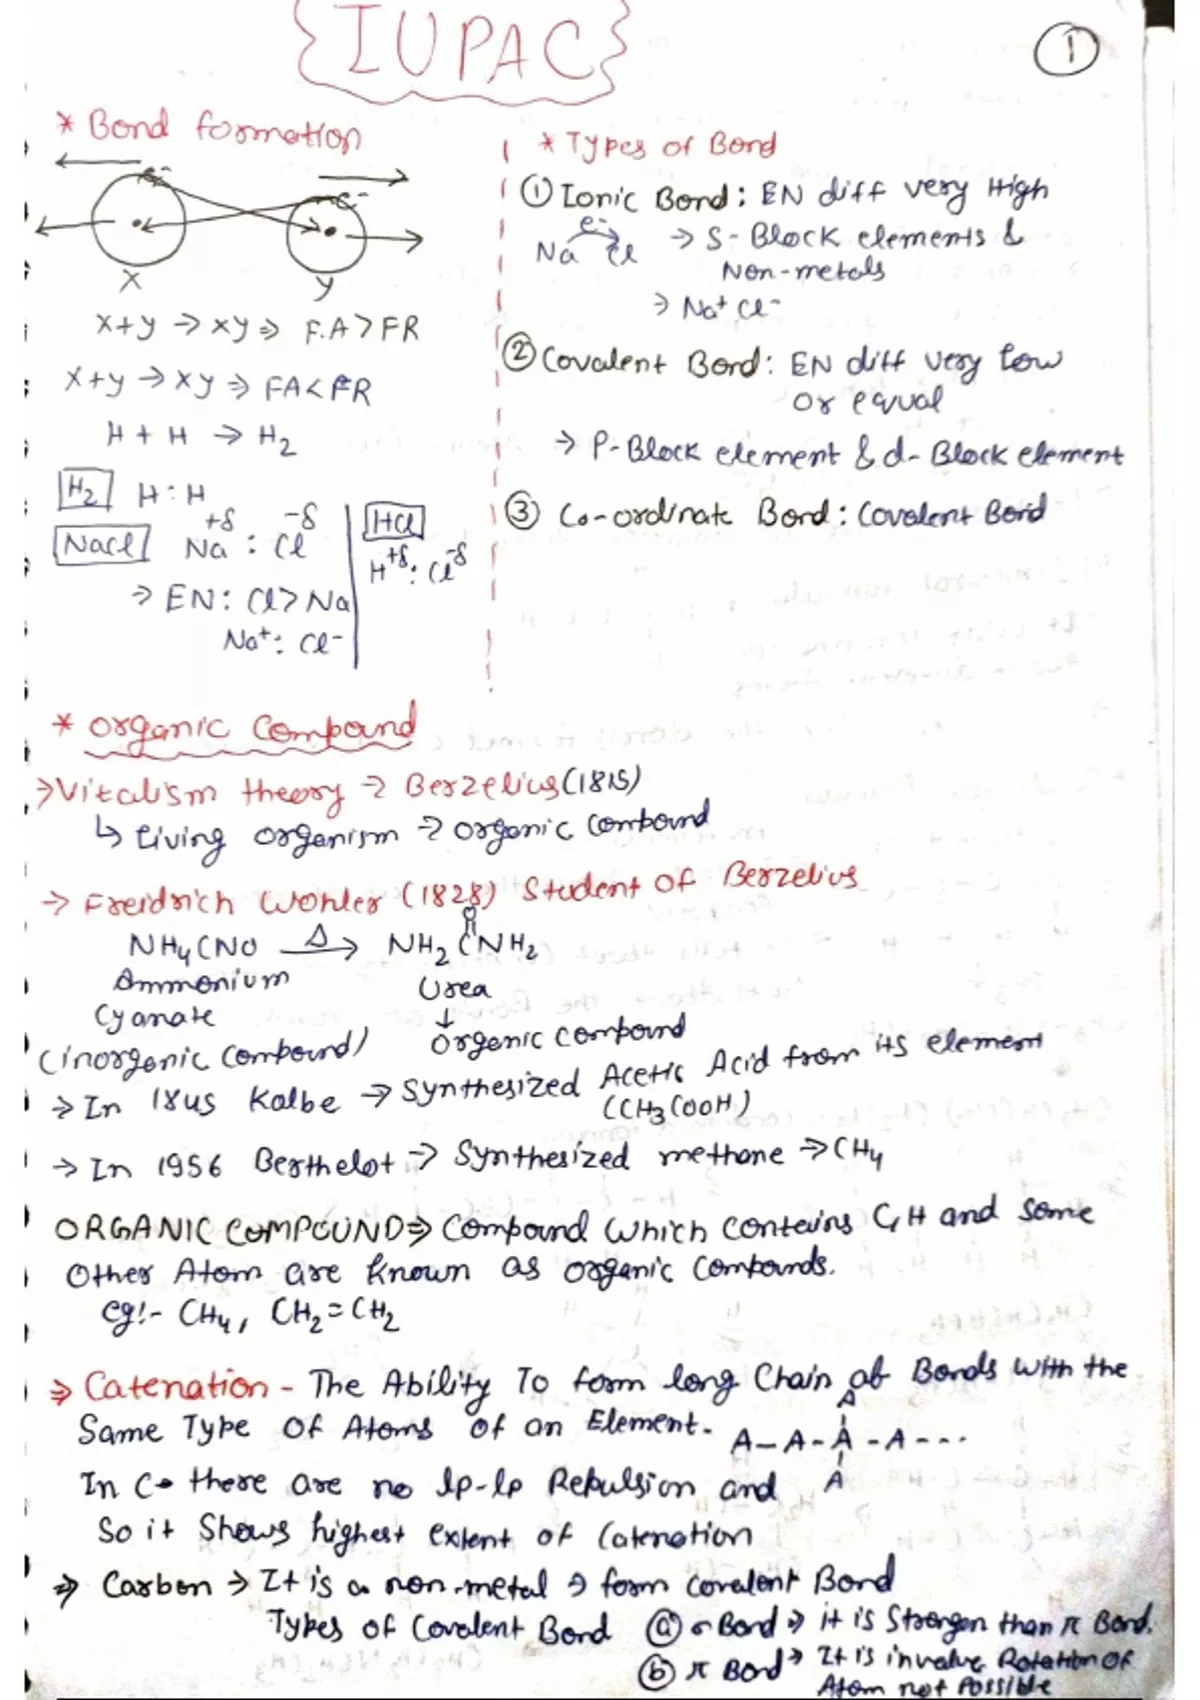 {IUPAC}
1
* Bond formation
e- e-
X Y
X+y → xy ⇒ F.A > FR
X+y → xy ⇒ FA < FR
H + H → H2
H2 H : H
+δ -δ
NaCl Na : Cl
⇒ EN: Cl > Na
Na+ : Cl-
HCl
H+δ : Cl-δ
* Types of Bond
① Ionic Bond : EN diff very High
e-
Na Cl → S-Block elements &
Non-metals
⇒ Na+ Cl-
② Covalent Bond : EN diff very low
or equal
→ P-Block element & d-Block element
③ Co-ordinate Bond : Covalent Bond
* Organic Compound
→ Vitalism theory → Berzelius (1815)
↳ living organism → organic compound
→ Freidrich Wohler (1828) Student of Berzelius
O
NH4CNO Δ→ NH2 C NH2
Ammonium Urea
Cyanate ↓
(inorganic compound) organic compound
→ In 1845 Kolbe → Synthesized Acetic Acid from its element
(CH3COOH)
→ In 1956 Berthelot → Synthesized methane → CH4
ORGANIC COMPOUND ⇒ Compound which contains C, H and some
Other Atom are known as organic compounds.
eg:- CH4, CH2=CH2
⇒ Catenation - The Ability To form long Chain of Bonds with the
Same Type Of Atoms of an Element.
A
A-A-A-A---
A
In C → there are no lp-lp Repulsion and
So it Shows highest extent of Catenation
⇒ Carbon → It is a non-metal → form covalent Bond
Types of Covalent Bond ⓐ σ Bond ⇒ it is Stronger than π Bond.
ⓑ π Bond → It is involve Rotation of
Atom not Possible